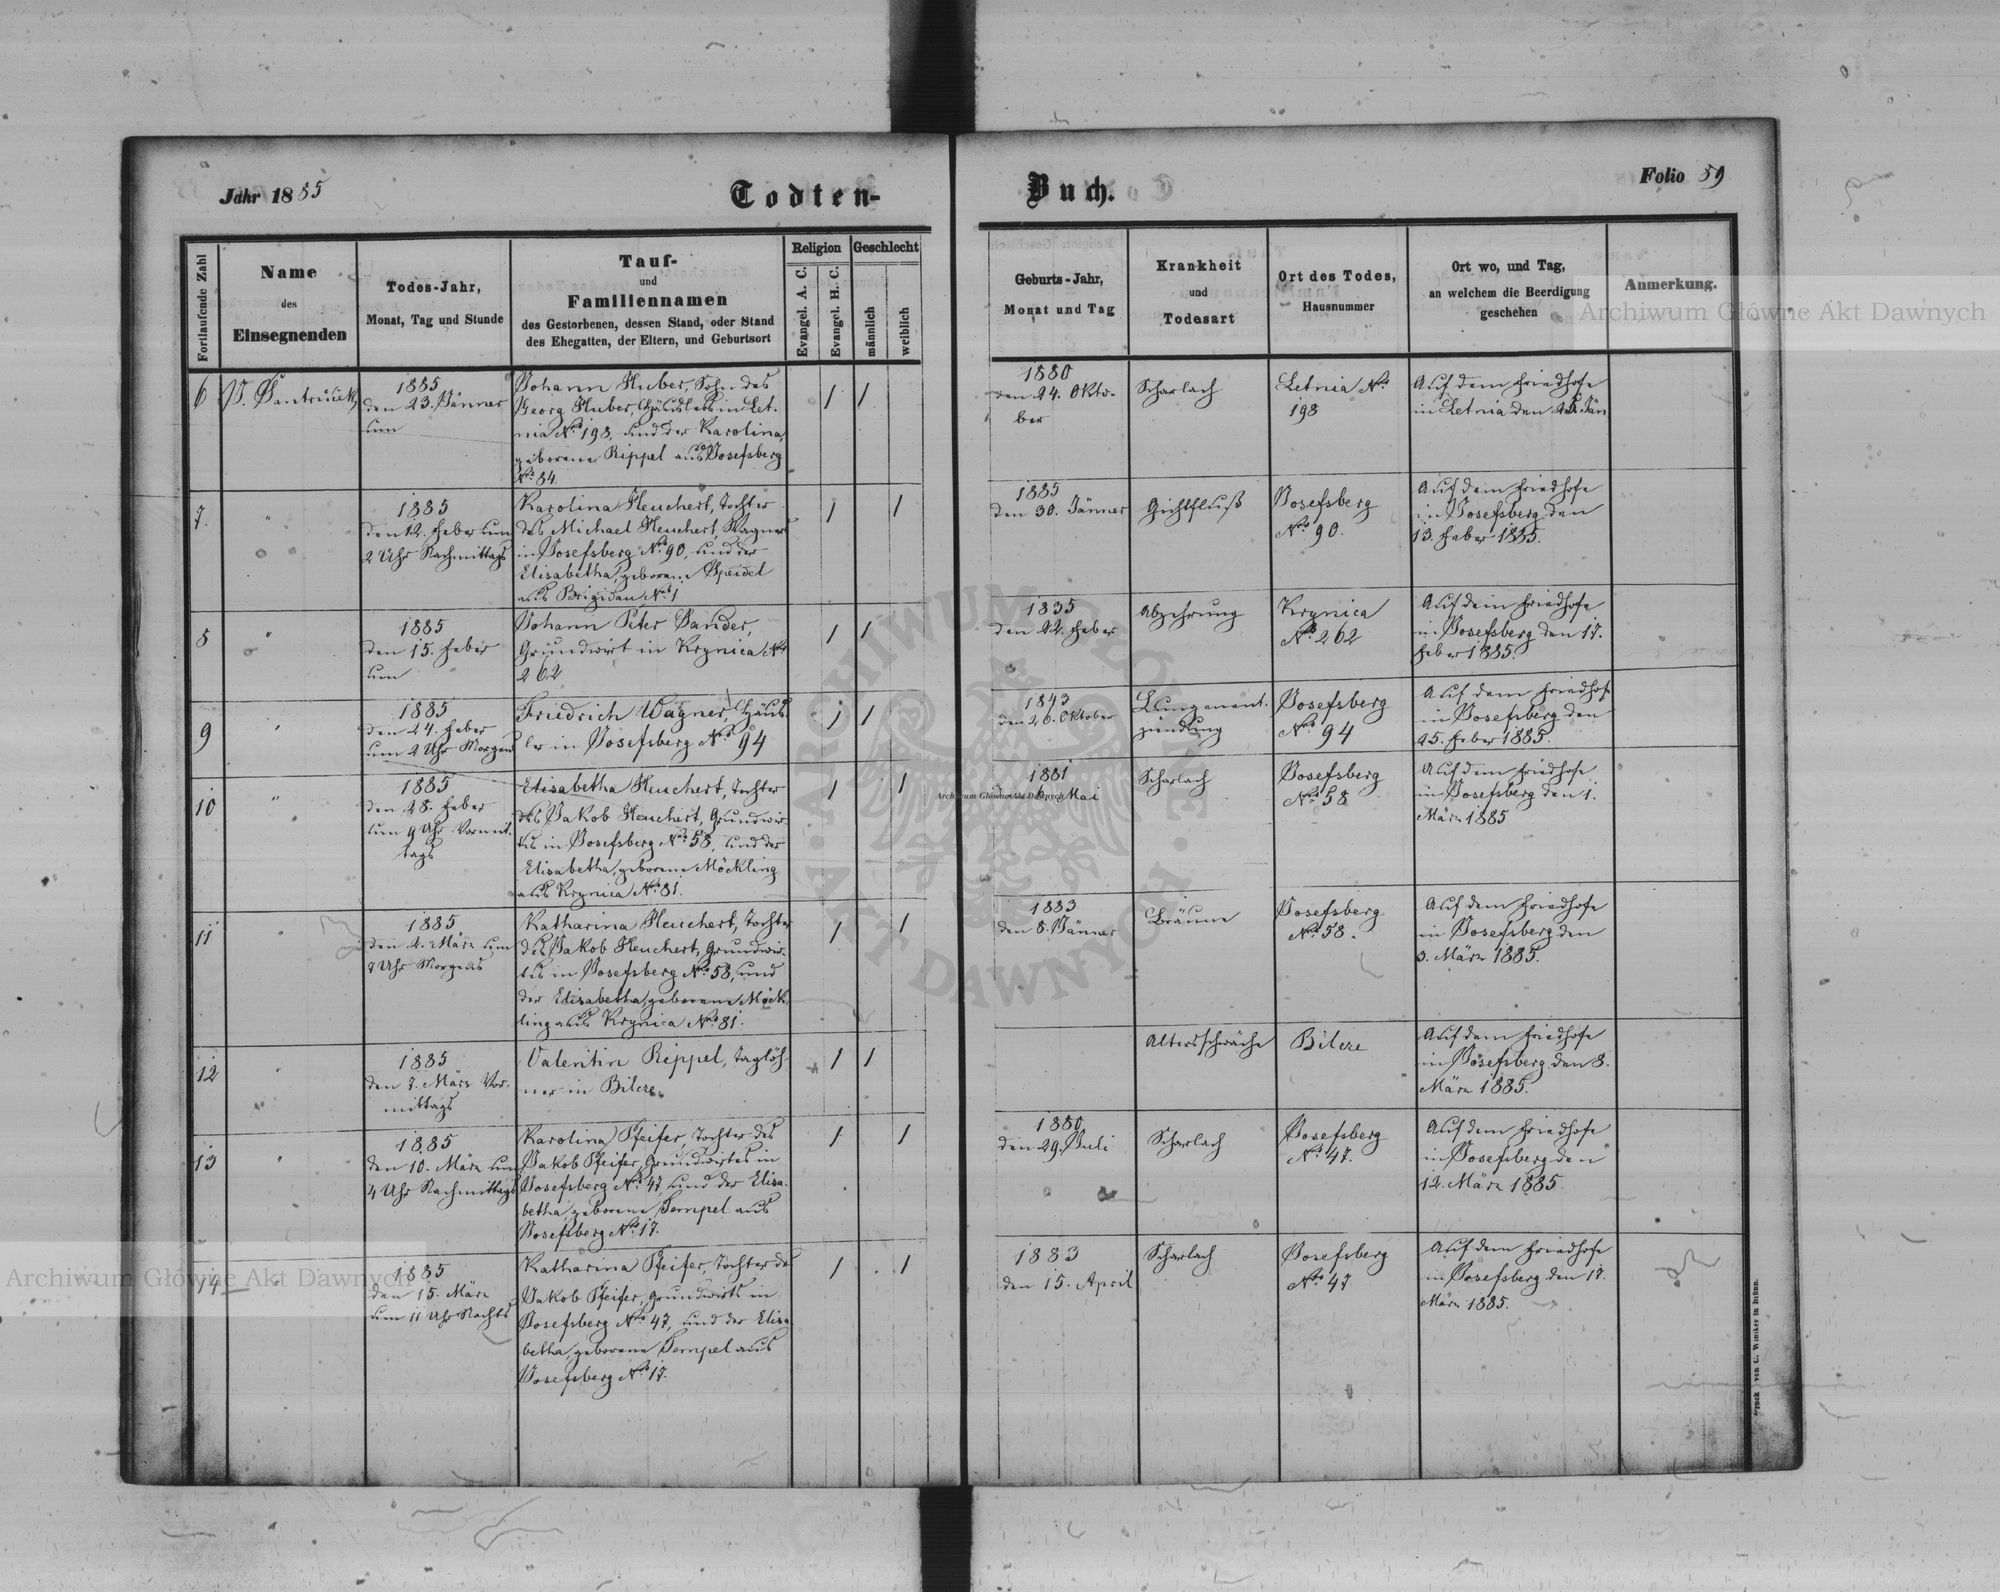 Jahr 1885
Todten-
Buch.
Folio 59
Fortlaufende Zahl
Name
des
Einsegnenden
Todes-Jahr,
Monat, Tag und Stunde
Tauf-
und
Familiennamen
des Gestorbenen, dessen Stand, oder Stand
des Ehegatten, der Eltern, und Geburtsort
Religion
Evangel. A. C.
Evangel. H. C.
Geschlecht
männlich
weiblich
Geburts-Jahr,
Monat und Tag
Krankheit
und
Todesart
Ort des Todes,
Hausnummer
Ort wo, und Tag,
an welchem die Beerdigung
geschehen
Anmerkung.
6
1885
den 23. Jänner
um
Johann Huber, Sohn des
Georg Huber, Häuslers in Let-
nia No 198, und der Karolina,
geborene Rippel aus Josefsberg
No 84.
/ /
1880
den 24. Okto-
ber
Scharlach
Letnia No
198
Auf dem Friedhofe
in Letnia den 25. Jän
7.
" "
1885
den 12. Feber um
2 Uhr Nachmittags
Karolina Heuchert, Tochter
des Michael Heuchert, Wagners
in Josefsberg No 90, und der
Elisabetha, geborene Speidel
aus Brigidau No 1
/ /
1885
den 30. Jänner
Gichtfluß
Josefsberg
No 90.
Auf dem Friedhofe
in Josefsberg den
13. Feber 1885.
8
"
1885
den 15. Feber
um
Johann Peter Sander,
Grundwirt in Krynica No
262
/ /
1835
den 22. Feber
Abzehrung
Krynica
No 262
Auf dem Friedhofe
in Josefsberg den 17.
Feber 1885.
9
"
1885
den 24. Feber
um 2 Uhr Morgens
Friedrich Wagner, Häus-
ler in Josefsberg No 94
/ /
1843
den 26. Oktober
Lungenent-
zündung
Josefsberg
No 94
Auf dem Friedhofe
in Josefsberg den
25. Feber 1885.
10
"
1885
den 28. Feber
um 9 Uhr Vormit-
tags
Elisabetha Heuchert, Tochter
des Jakob Heuchert, Grundwir-
tes in Josefsberg No 58, und der
Elisabetha, geborene Möckling
aus Krynica No 81.
/ /
1881
den 6. Mai
Scharlach
Josefsberg
No 58
Auf dem Friedhofe
in Josefsberg den 1.
März 1885
11
"
1885
März um
Uhr Morgens
Katharina Heuchert, Tochter
des Jakob Heuchert, Grundwir-
tes in Josefsberg No 58, und
der Elisabetha, geborene Möck-
ling aus Krynica No 81.
/ /
1883
den 8. Jänner
Bräune
Josefsberg
No 58.
Auf dem Friedhofe
in Josefsberg den
3. März 1885.
12
"
1885
den 7. März Vor-
mittags
Valentin Rippel, Taglöh-
ner in Bilcze.
/ /
Altersschwäche
Bilcze
Auf dem Friedhofe
in Josefsberg den 8.
März 1885.
13
"
1885
den 10. März um
4 Uhr Nachmittags
Karolina Pfeifer, Tochter des
Jakob Pfeifer, Grundwirtes in
Josefsberg No 47, und der Elisa-
betha, geborene Tempel aus
Josefsberg No 17.
/ /
1880
den 29. Juli
Scharlach
Josefsberg
No 47.
Auf dem Friedhofe
in Josefsberg den
12. März 1885.
14
"
1885
den 15. März
um 11 Uhr Nachts
Katharina Pfeifer, Tochter des
Jakob Pfeifer, Grundwirts in
Josefsberg No 47, und der Elisa-
betha, geborene Tempel aus
Josefsberg No 17.
/ /
1883
den 15. April
Scharlach
Josefsberg
No 47
Auf dem Friedhofe
in Josefsberg den 17.
März 1885.
Archiwum Główne Akt Dawnych
Archiwum Główne Akt Dawnych
Archiwum Główne Akt Dawnych
ARCHIWUM GŁÓWNE AKT DAWNYCH